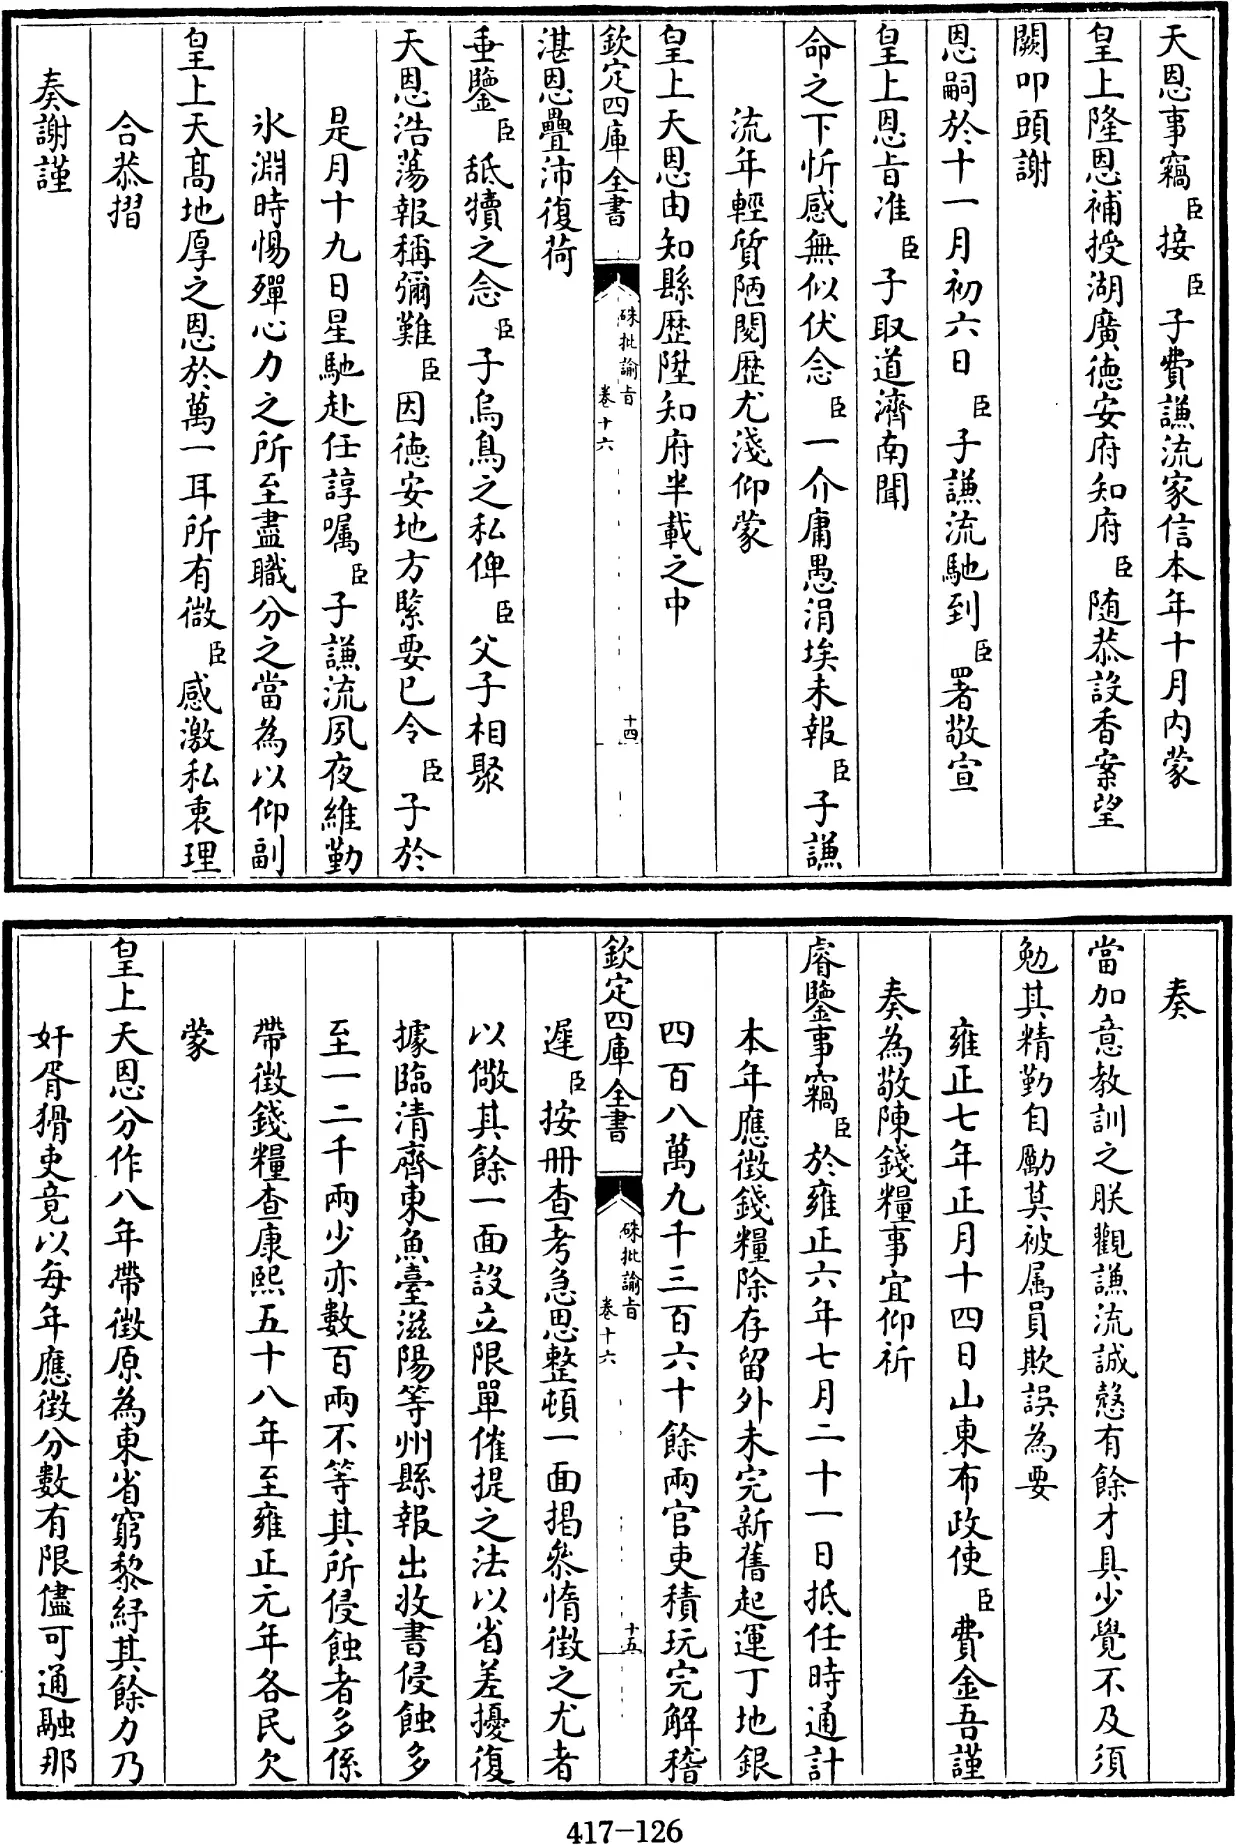 天恩事竊臣接臣子費謙流家信本年十月內蒙
皇上隆恩補授湖廣德安府知府臣隨恭設香案望
闕叩頭謝
恩嗣於十一月初六日臣子謙流馳到臣署敬宣
皇上恩旨准臣子取道濟南聞
命之下忻感無似伏念臣一介庸愚涓埃未報臣子謙
流年輕質陋閱歷尤淺仰蒙
皇上天恩由知縣歷陞知府半載之中
欽定四庫全書
硃批諭旨
卷十六
十四
湛恩疊沛復荷
垂鑒臣舐犢之念臣子烏鳥之私俾臣父子相聚
天恩浩蕩報稱彌難臣因德安地方緊要已令臣子於
是月十九日星馳赴任諄囑臣子謙流夙夜維勤
氷淵時惕殫心力之所至盡職分之當為以仰副
皇上天高地厚之恩於萬一耳所有微臣感激私衷理
合恭摺
奏謝謹
奏
當加意教訓之朕觀謙流誠慤有餘才具少覺不及須
勉其精勤自勵莫被属員欺誤為要
雍正七年正月十四日山東布政使臣費金吾謹
奏為敬陳錢糧事宜仰祈
睿鑒事竊臣於雍正六年七月二十一日抵任時通計
本年應徵錢糧除存留外未完新舊起運丁地銀
四百八萬九千三百六十餘兩官吏積玩完解稽
欽定四庫全書
硃批諭旨
卷十六
十五
遲臣按冊查考急思整頓一面揭叅惰徵之尤者
以儆其餘一面設立限單催提之法以省差擾復
據臨清齊東魚臺滋陽等州縣報出收書侵蝕多
至一二千兩少亦數百兩不等其所侵蝕者多係
帶徵錢糧查康熙五十八年至雍正元年各民欠
蒙
皇上天恩分作八年帶徵原為東省窮黎紓其餘力乃
奸胥猾吏竟以每年應徵分數有限儘可通融那
417-126